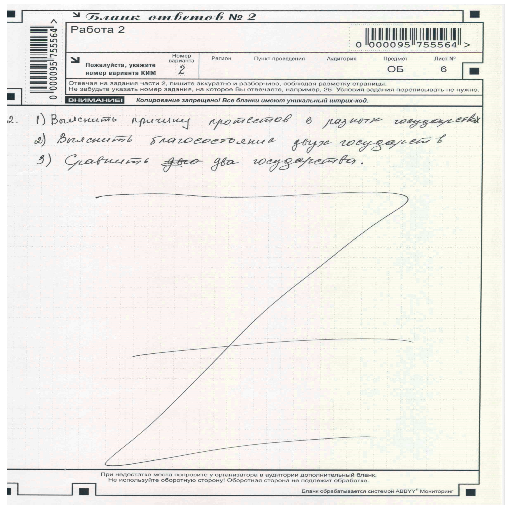 Бланк ответов № 2
Работа 2
0 000095 755564 >
0 000095 755564 >
Пожалуйста, укажите номер варианта КИМ
Номер варианта
2
Регион
Пункт проведения
Аудитория
Предмет
ОБ
Лист №
6
Отвечая на задания части 2, пишите аккуратно и разборчиво, соблюдая разметку страницы.
Не забудьте указать номер задания, на которое Вы отвечаете, например, 26. Условия задания переписывать не нужно.
ВНИМАНИЕ! Копирование запрещено! Все бланки имеют уникальный штрих-код.
2. 1) Выяснить причину протестов в разных государствах
2) Выяснить благосостояние двух государств
3) Сравнить два государства.
При недостатке места попросите у организатора в аудитории дополнительный бланк.
Не используйте оборотную сторону! Оборотная сторона не подлежит обработке.
Бланк обрабатывается системой ABBYY Мониторинг